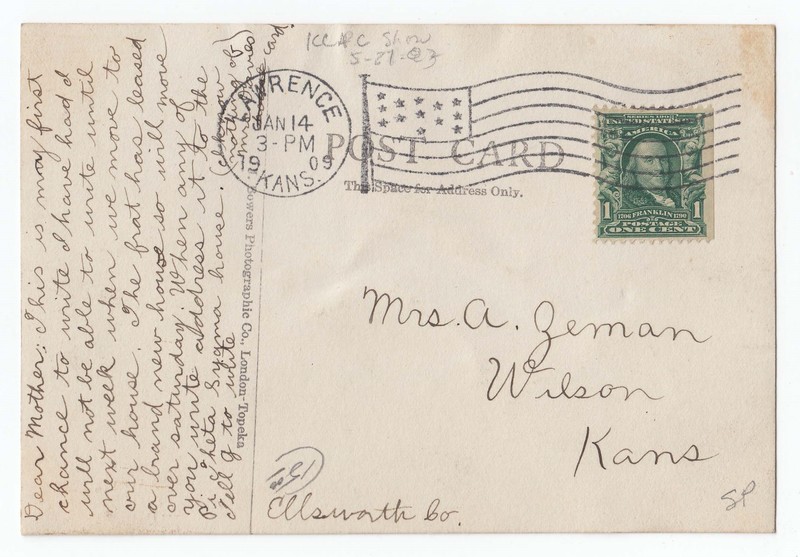 Dear Mother: This is may first
chance to write I have had I
will not be able to write until
next week when we move to
our house. The frat has leased
a brand new house so will move
over saturday. When any of
you write address it to the
Pi Theta Sygma house. (
Tell g to write
nothing of
card)
KCPC Show
5-27-83
LAWRENCE
JAN 14
3-PM
1909
KANS.
POST CARD
This Space for Address Only.
SERIES 1902
UNITED STATES OF
AMERICA
1706 FRANKLIN 1790
POSTAGE
1 ONE CENT
Bowers Photographic Co., London-Topeka
Mrs. A. Zeman
Wilson
Kans
Ellsworth Co.
SP